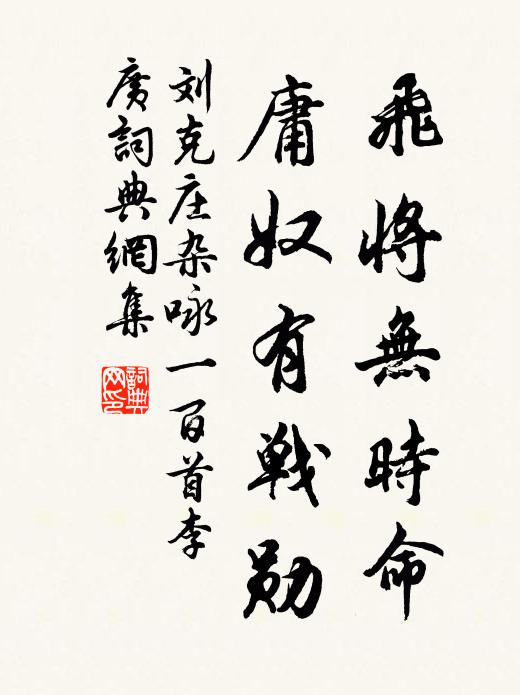 飛將無時命
庸奴有戦勛
刘克庄杂咏一百首李
廣詞典網集
詞典
网印